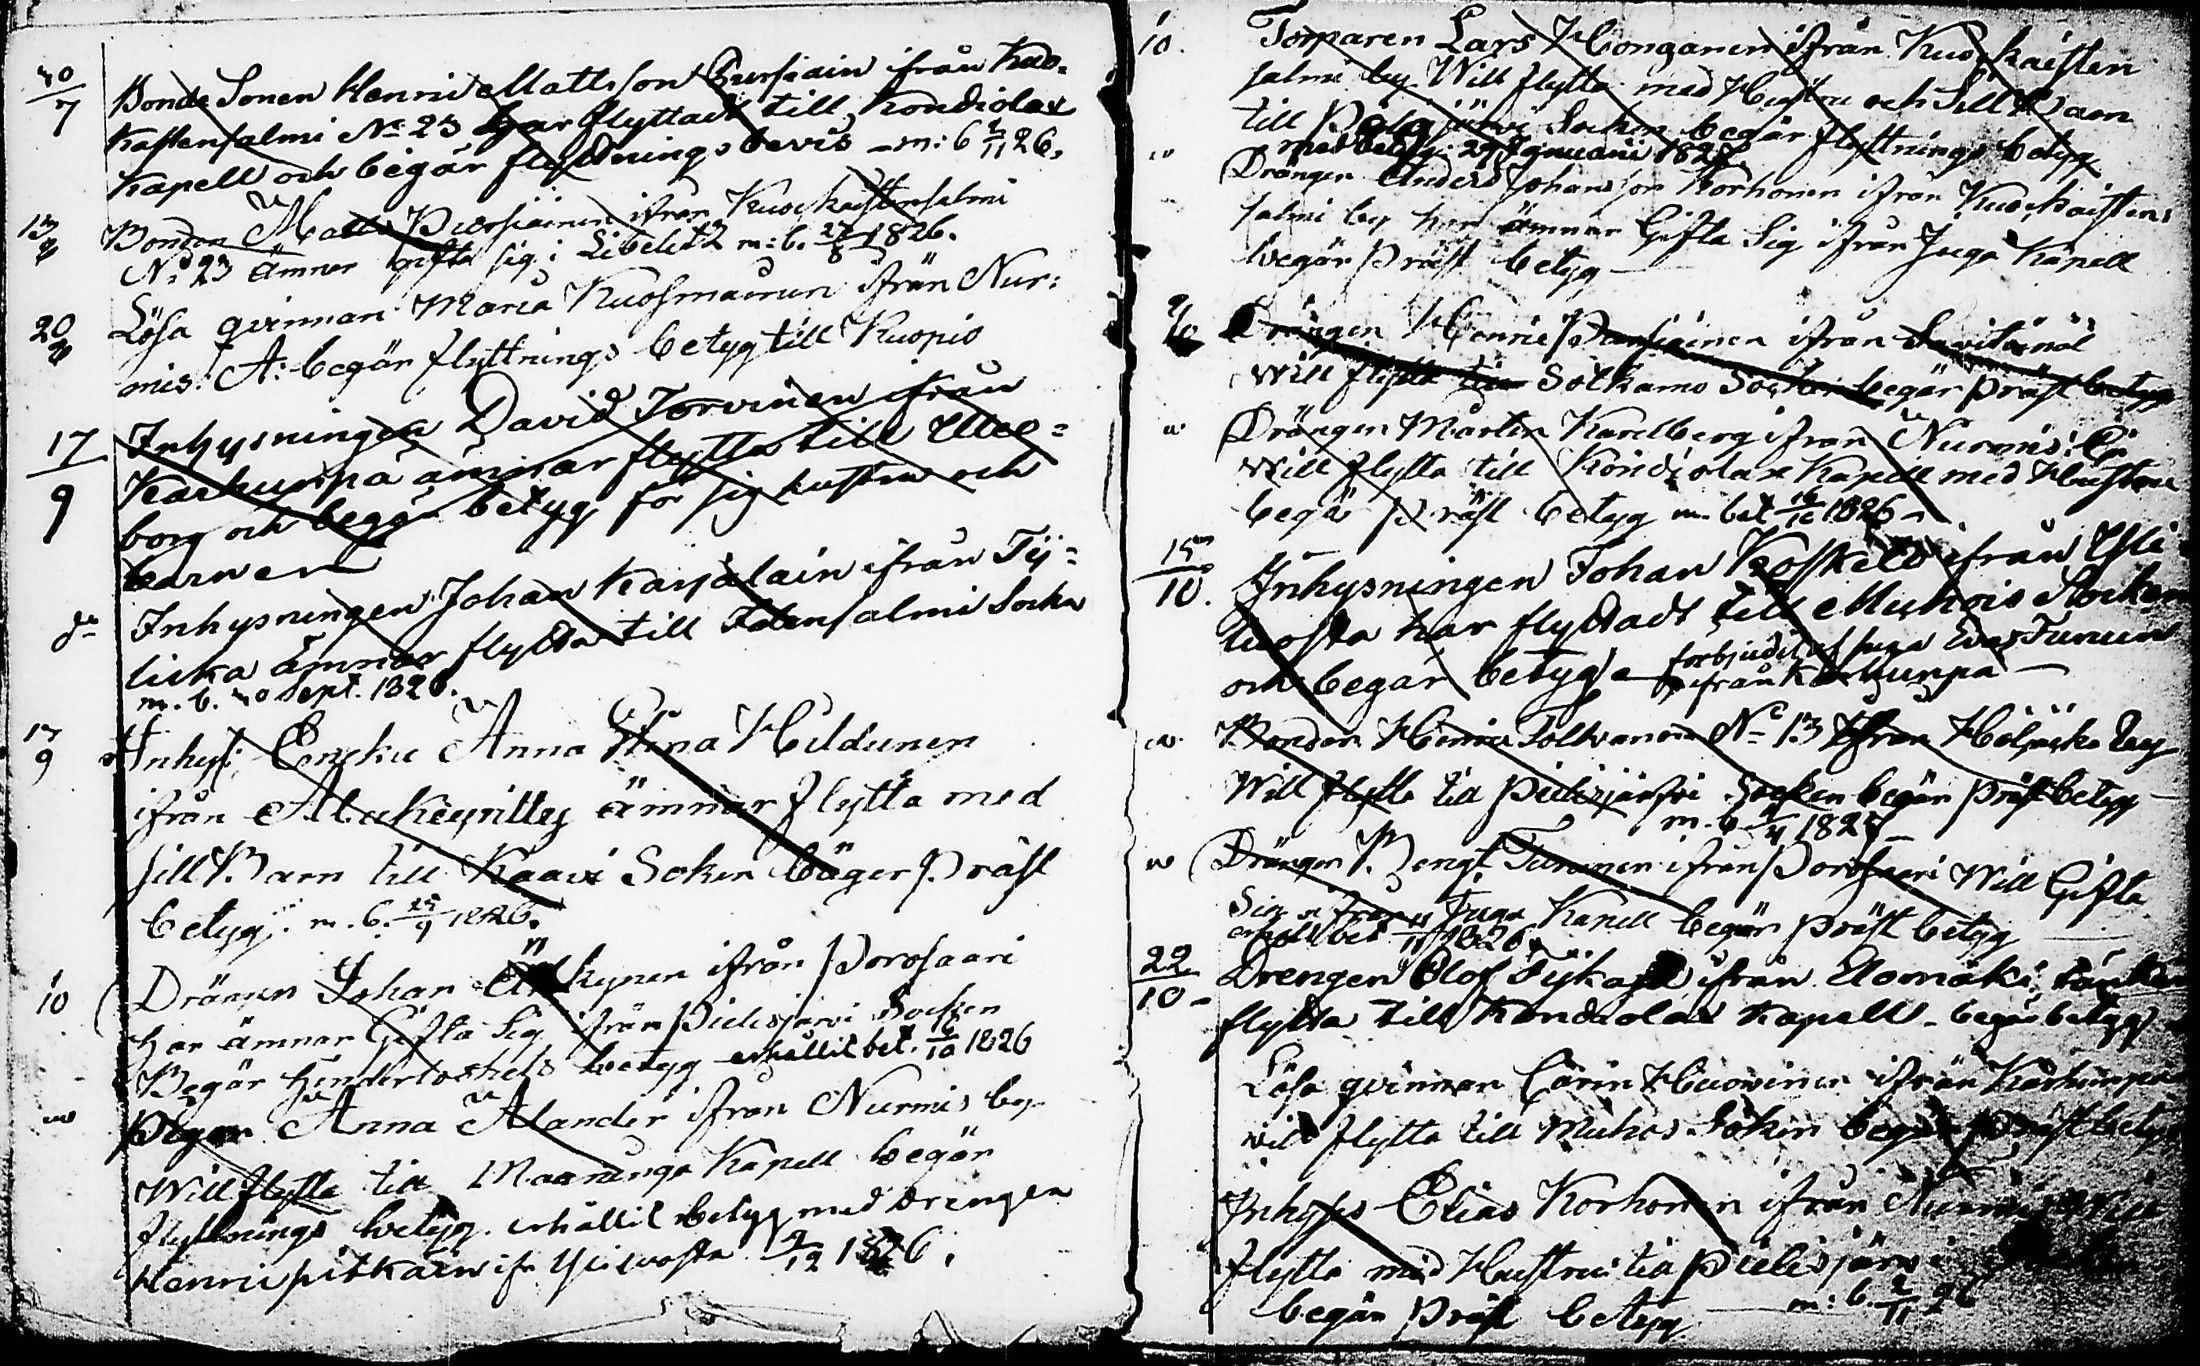 30/7 Bonde Sonen Henric Mattsson Pursiain ifrån Kuo-
kastensalmi No 23 har flyttadt till Kondiolax
Kapell och begär flyttnings bevis - m: b 2/11 26.
13/8 Bonden Matts Pursiäinen ifrån Kuockastensalmi
No 23 ämnar gifta sig i Libelitz m: b. 27/8 1826.
20/8 Lösa qvinnan Maria Kuosmainen ifrån Nur:
mis: A: begär flyttnings betyg till Kuopio
17/9 Inhysningen David Torvinen ifrån
Karhunpä ämnar flytta till Uleo-
borg och begär betyg för sig hustru och
barnen
do Inhysningen Johan Karjalain ifrån Tij-
liska ämnar flytta till Idensalmi Sockn
m. b. 20 Sept. 1826.
17/9 Inhys: Encku Anna Stina Hildunen
ifrån Alakeyritty ämnar flytta med
sill Barn till Kaavi Soken bäger Präst
betyg. m. b. 25/9 1826.
10 Drängen Johan kynen ifrån Porosaari
har ämnar Gifta Sig ifrån Pielisjärvi Socken
Begär Hinderlöshets betyg erhållit bet. 16/10 1826
Pigan Anna Alander ifrån Nurmis by
Will flytta till Maaninga Kapell begär
flyttnings betyg. erhållit betyg med Drengen
Henric Pitkäin ifr Ylilvosta 2/12 1826.
10. Torparen Lars Honganen ifrån Kuockaisten
salmi by Will flytta med Hustru och Sill Barn
till Pälgjärvi Socken begär flyttnings betyg
med betyg: 27 Januarii 1827.
Drängen Anders Johansson Korhonen ifrån Kuockaisten:
salmi by har ämnar Gifta Sig ifrån Juga Kapell
begär Präst betyg
Drängen Henric Pursiainen ifrån
Will flytta till Sotkamo Socken begär Präst betyg
Drängen Mårten Karelberg ifrån Nurmis: By
Will flytta till Kondiolax Kapell med Hustru
begär Präst betyg m. bet 16/10 1826
15/10. Inhysningen Johan Koskelo ifrån Yli
lvosta har flyttadt till Muhois Socken
och begär betyg forbjudit af piga Eva Turunen
ifrån Karhunpä
Bonden Henric Tolvanen No 13 Ifrån Höljäckä by
Will flytta till Pielisjärfvi Socken begär Präst betyg
m. b 1827
Drängen Bengt Turunen ifrån Porosaari Will Gifta
Sig ifrån Juga Kapell begär Präst betyg
erhållit bet 11/11 1826.
22/10 Drengen Olof Tijkaja ifrån Elomäki tänker
flytta till Kondiolax Kapell - begär betyg
Lösa qvinnan Carin Huovinen ifrån Karhunpä
will flytta till Muhos Soken begär Präst betyg
Inhyses Elias Korhonen ifrån Nurmis Will
flytta med Hustru till Pielisjärvi
begär Präst betyg m: b. 2/11 26